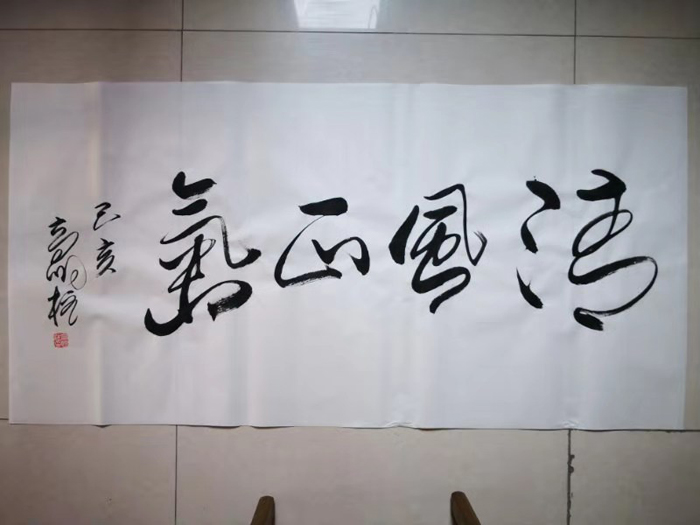 清風正氣
己亥